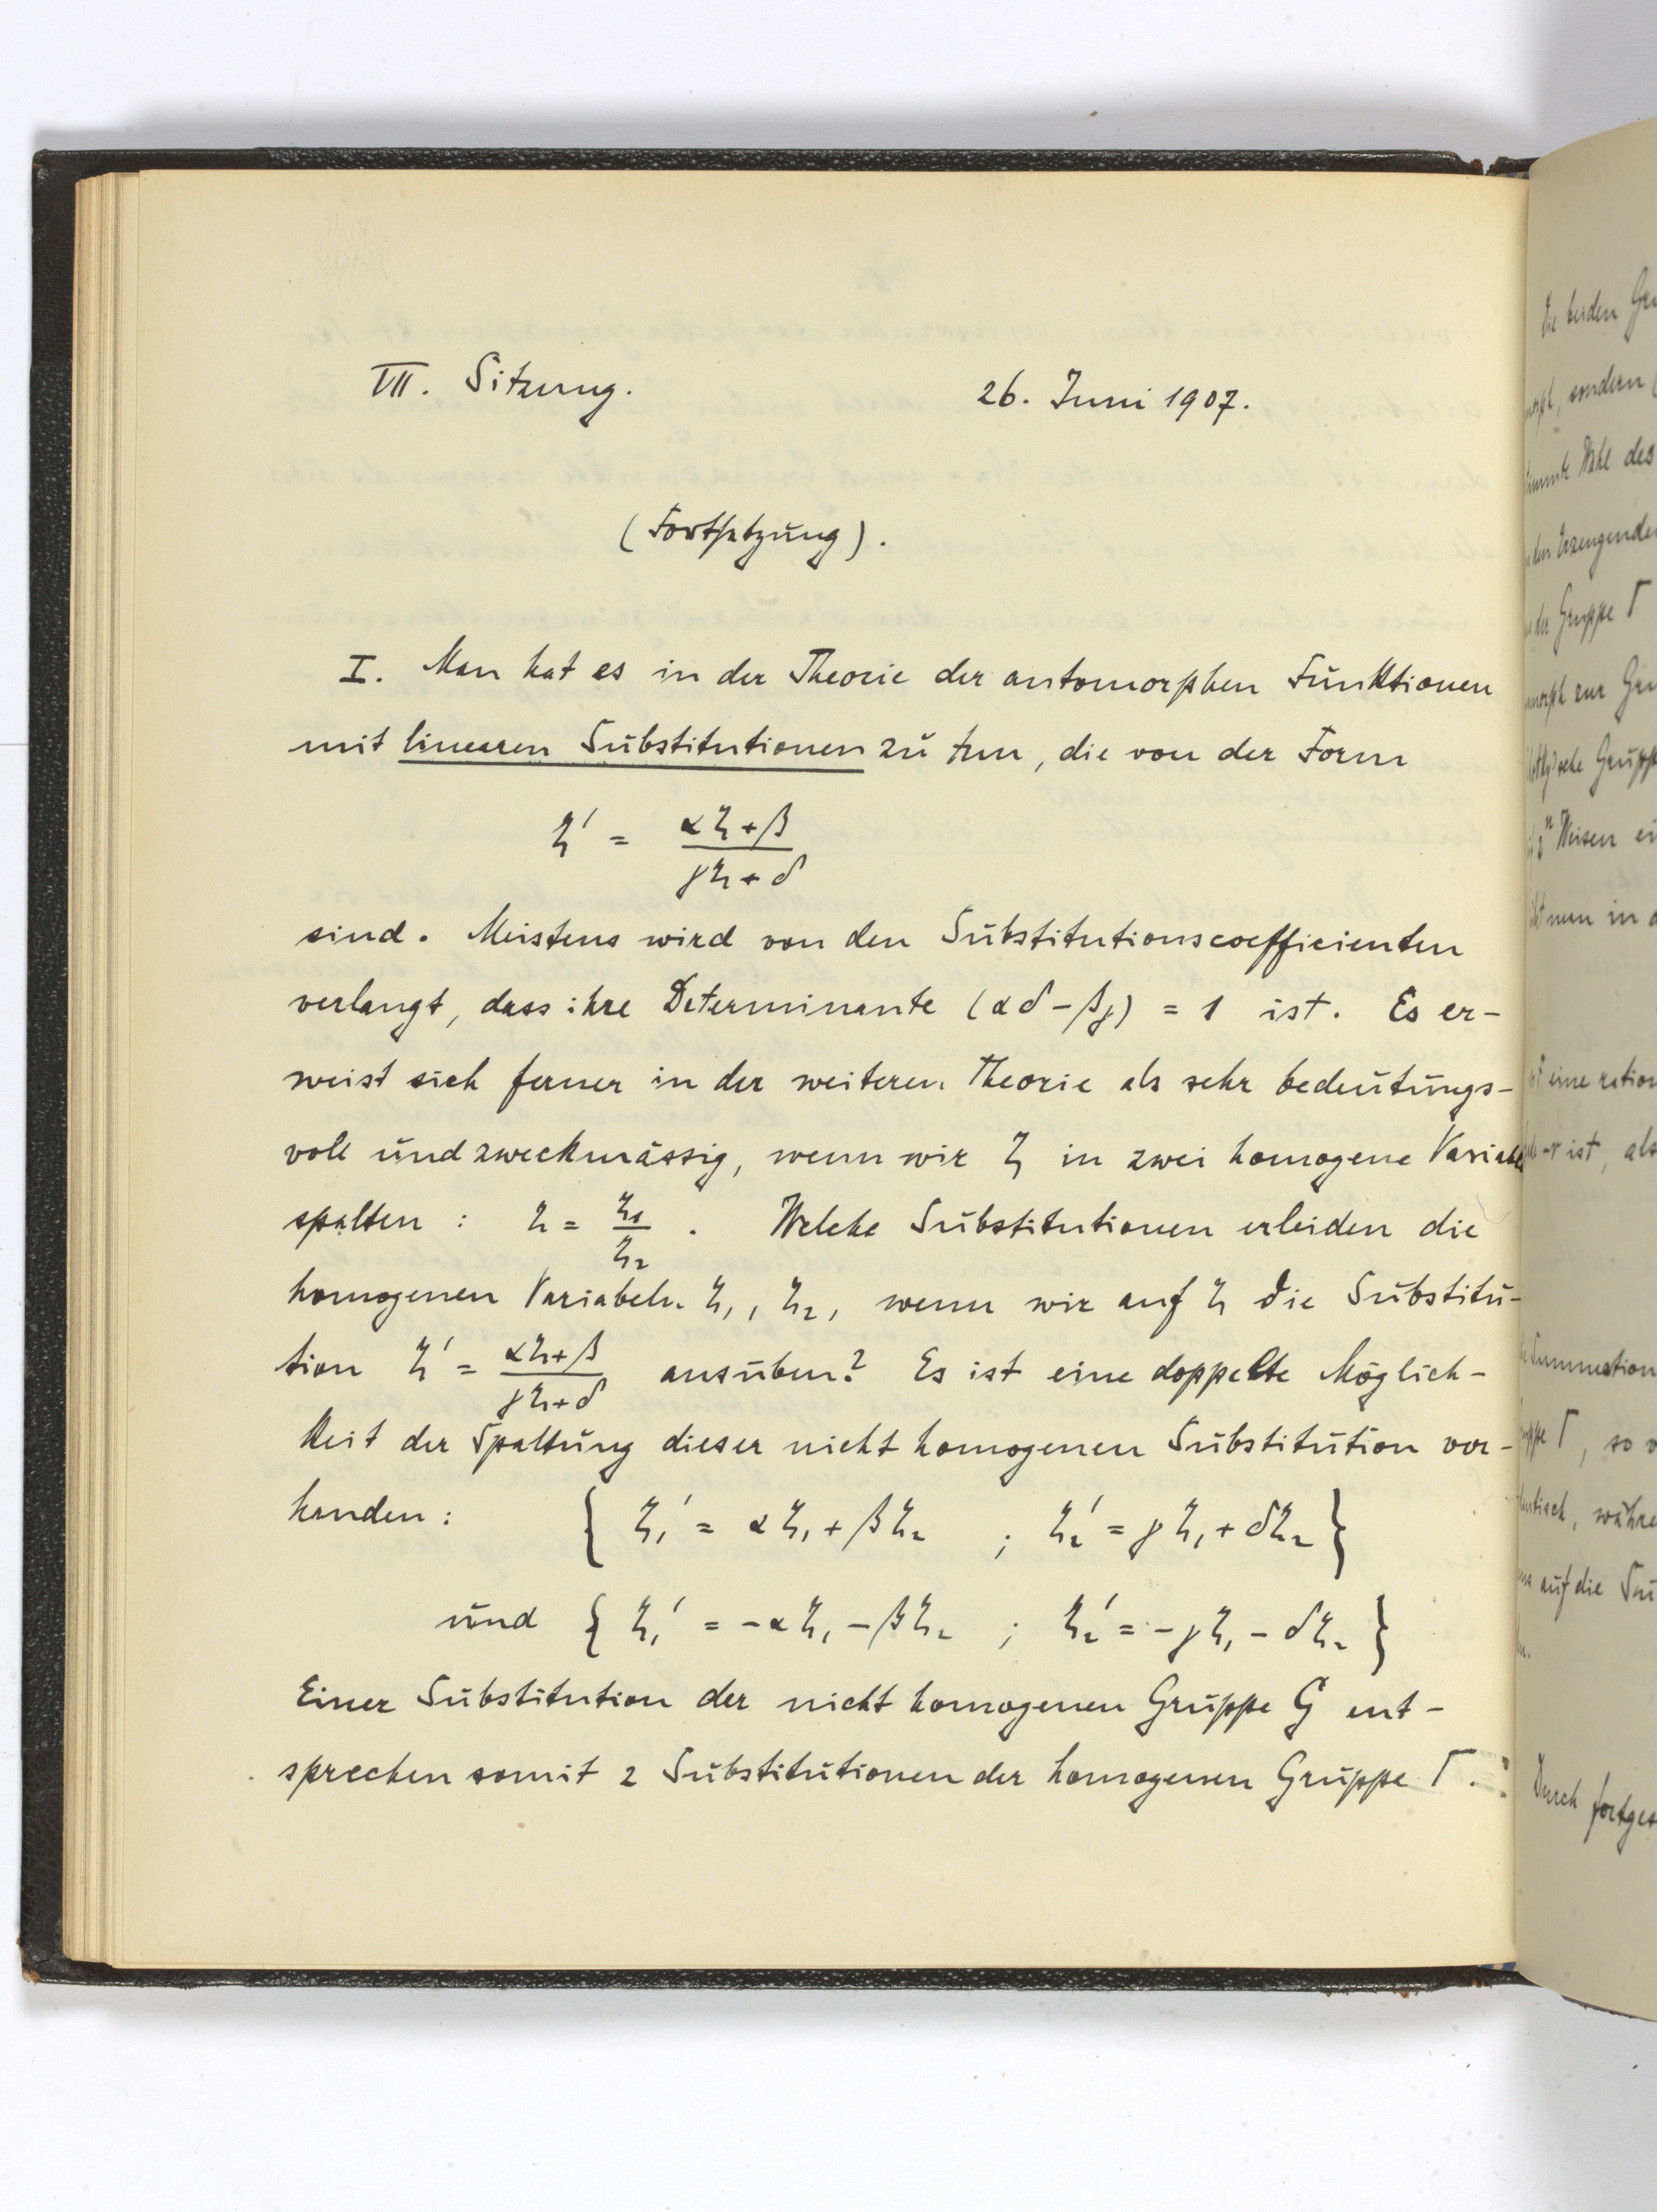 VII. Sitzung. 26. Juni 1907.
(Fortsetzung).
I. Man hat es in der Theorie der automorphen Funktionen
mit linearen Substitutionen zu tun, die von der Form
ζ' = (αζ+β)/(γζ+δ)
sind. Meistens wird von den Substitutionscoefficienten
verlangt, dass ihre Determinante (αδ-βγ) = 1 ist. Es er-
weist sich ferner in der weiteren Theorie als sehr bedeutungs-
voll und zweckmässig, wenn wir ζ in zwei homogene Variabeln
spalten : ζ = ζ₁/ζ₂ . Welche Substitutionen erleiden die
homogenen Variabeln ζ₁, ζ₂, wenn wir auf ζ die Substitu-
tion ζ' = (αζ+β)/(γζ+δ) ausüben? Es ist eine doppelte Möglich-
keit der Spaltung dieser nicht homogenen Substitution vor-
handen: { ζ₁' = αζ₁ + βζ₂ ; ζ₂' = γζ₁ + δζ₂ }
und { ζ₁' = -αζ₁ - βζ₂ ; ζ₂' = -γζ₁ - δζ₂ }
Einer Substitution der nicht homogenen Gruppe G ent-
sprechen somit 2 Substitutionen der homogenen Gruppe Γ.
Die beiden
sondern
Wahl des
Erzeugenden
der Gruppe Γ
zur
Weisen
man in
eine
ist, als
Γ, so
auf die
Durch